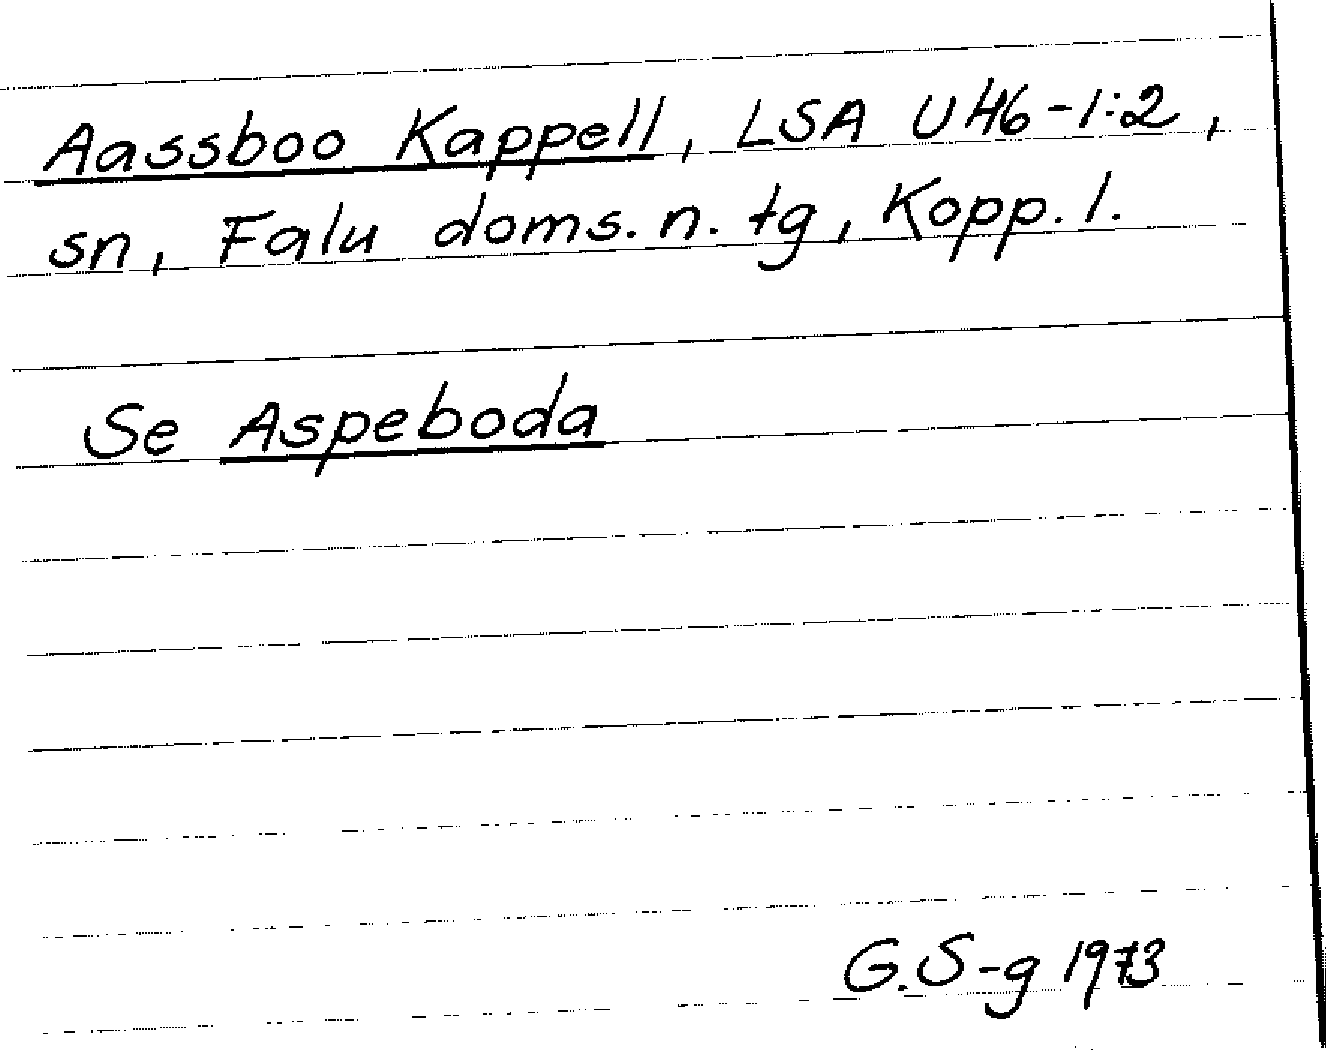 Aassboo Kappell, LSA U46-1:2,
sn, Falu doms. n. tg, Kopp. l.
Se Aspeboda
G.S-g 1973